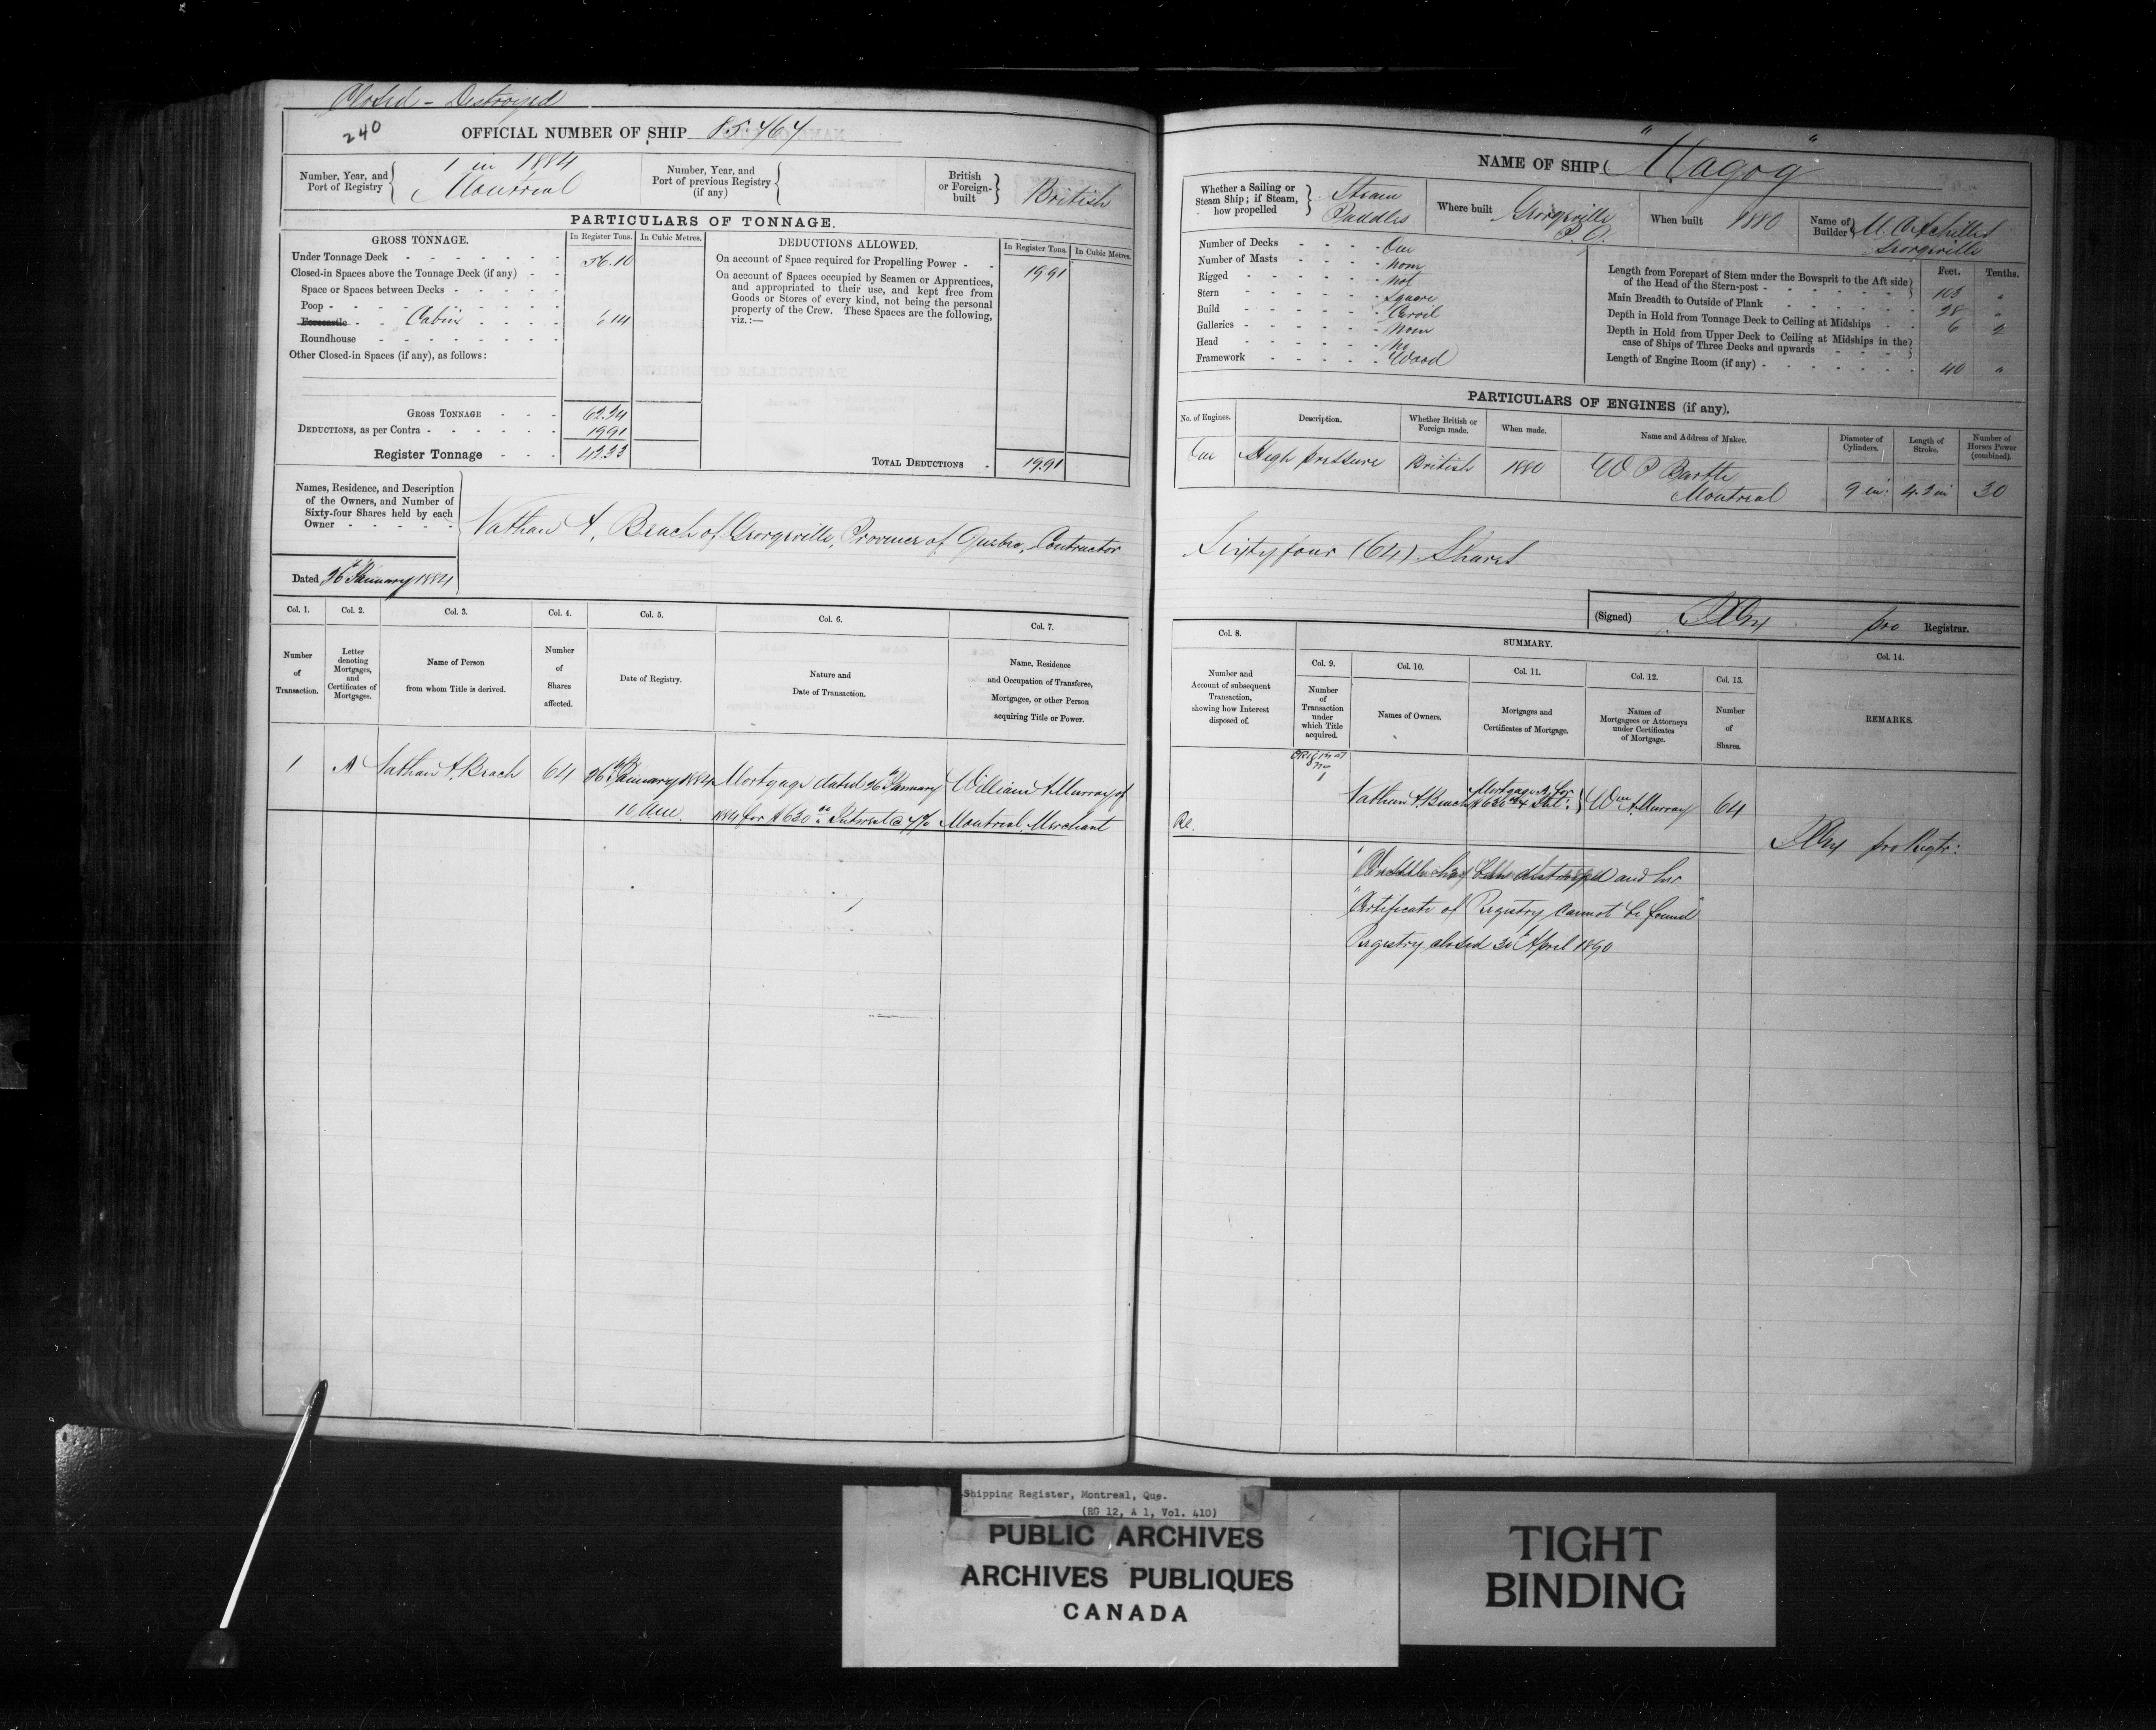 Closed - Destroyed
240
OFFICIAL NUMBER OF SHIP 85.764
Number, Year, and Port of Registry
1 in 1884
Montreal
Number, Year, and Port of previous Registry (if any)
British or Foreign-built
British
PARTICULARS OF TONNAGE.
GROSS TONNAGE.
In Register Tons.
In Cubic Metres.
Under Tonnage Deck 56.10
Closed-in Spaces above the Tonnage Deck (if any)
Space or Spaces between Decks
Poop
Forecastle Cabin 6.14
Roundhouse
Other Closed-in Spaces (if any), as follows:
GROSS TONNAGE 62.24
DEDUCTIONS, as per Contra 19.91
Register Tonnage 42.33
DEDUCTIONS ALLOWED.
In Register Tons.
In Cubic Metres.
On account of Space required for Propelling Power 19.91
On account of Spaces occupied by Seamen or Apprentices,
and appropriated to their use, and kept free from
Goods or Stores of every kind, not being the personal
property of the Crew. These Spaces are the following,
viz.:—
TOTAL DEDUCTIONS 19.91
Names, Residence, and Description
of the Owners, and Number of
Sixty-four Shares held by each
Owner
Nathan A. Beach of Georgeville, Province of Quebec, Contractor
Dated 26th January 1884
Col. 1.
Number of Transaction.
Col. 2.
Letter denoting Mortgages, and Certificates of Mortgages.
Col. 3.
Name of Person from whom Title is derived.
Col. 4.
Number of Shares affected.
Col. 5.
Date of Registry.
Col. 6.
Nature and Date of Transaction.
Col. 7.
Name, Residence and Occupation of Transferee, Mortgagee, or other Person acquiring Title or Power.
1 A Nathan A. Beach 64 26th January 1884 Mortgage dated 26th January William A. Murray of
10 A.M. 1884 for $630.00 Interest @ 7% Montreal, Merchant
NAME OF SHIP "Magog"
Whether a Sailing or Steam Ship; if Steam, how propelled
Steam
Paddles
Where built Georgeville
P.Q.
When built 1880
Name of Builder
Georgeville
Number of Decks One
Number of Masts None
Rigged Not
Stern Square
Build Carvil
Galleries None
Head No
Framework Wood
Feet. Tenths.
Length from Forepart of Stem under the Bowsprit to the Aft side
of the Head of the Stern-post "
Main Breadth to Outside of Plank 28 "
Depth in Hold from Tonnage Deck to Ceiling at Midships 6 2
Depth in Hold from Upper Deck to Ceiling at Midships in the
case of Ships of Three Decks and upwards
Length of Engine Room (if any) 40 "
PARTICULARS OF ENGINES (if any).
No. of Engines.
Description.
Whether British or Foreign made.
When made.
Name and Address of Maker.
Diameter of Cylinders.
Length of Stroke.
Number of Horses Power (combined).
One High pressure British 1880 W P Bartley
Montreal 9 in: 4.3 in 30
Sixty four (64) Shares
(Signed) pro Registrar.
Col. 8.
Number and Account of subsequent Transaction, showing how Interest disposed of.
SUMMARY.
Col. 9.
Number of Transaction under which Title acquired.
Col. 10.
Names of Owners.
Col. 11.
Mortgages and Certificates of Mortgage.
Col. 12.
Names of Mortgagees or Attorneys under Certificates of Mortgage.
Col. 13.
Number of Shares.
Col. 14.
REMARKS.
Original
No
1
Nathan A. Beach Mortgage A for $630.00 & Int: Wm A. Murray 64
pro Regtr:
"Vessel has been destroyed and her
"Certificate of Registry cannot be found"
Registry closed 30 April 1890
Shipping Register, Montreal, Que.
(RG 12, A 1, Vol. 410)
PUBLIC ARCHIVES
ARCHIVES PUBLIQUES
CANADA
TIGHT
BINDING